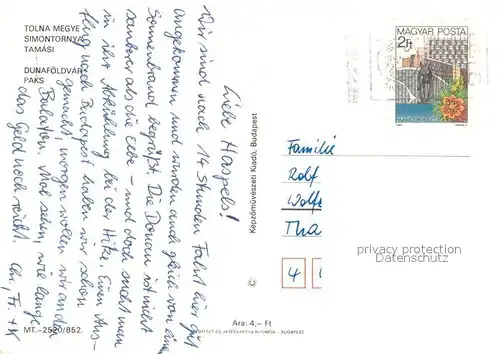 TOLNA MEGYE
SIMONTORNYA
TAMÁSI
DUNAFÖLDVÁR
PAKS
Liebe Haspels!
Wir sind nach 14 Stunden Fahrt hier gut
angekommen und wurden auch gleich von einem
Sonnenbrand begrüßt. Die Donau ist nicht
sauberer als die Elbe – und doch sucht man
in ihr Abkühlung bei der Hitze. Einen Aus-
flug nach Budapest haben wir schon
gemacht, morgen wollen wir an den
Balaton. Mal sehen, wie lange
das Geld noch reicht.
MT.-2520/852.
Képzőművészeti Kiadó, Budapest
Ára: 4,– Ft
MAGYAR POSTA
2 Ft
Familie
Rolf
Wolfr
Tha
4
privacy protection
Datenschutz